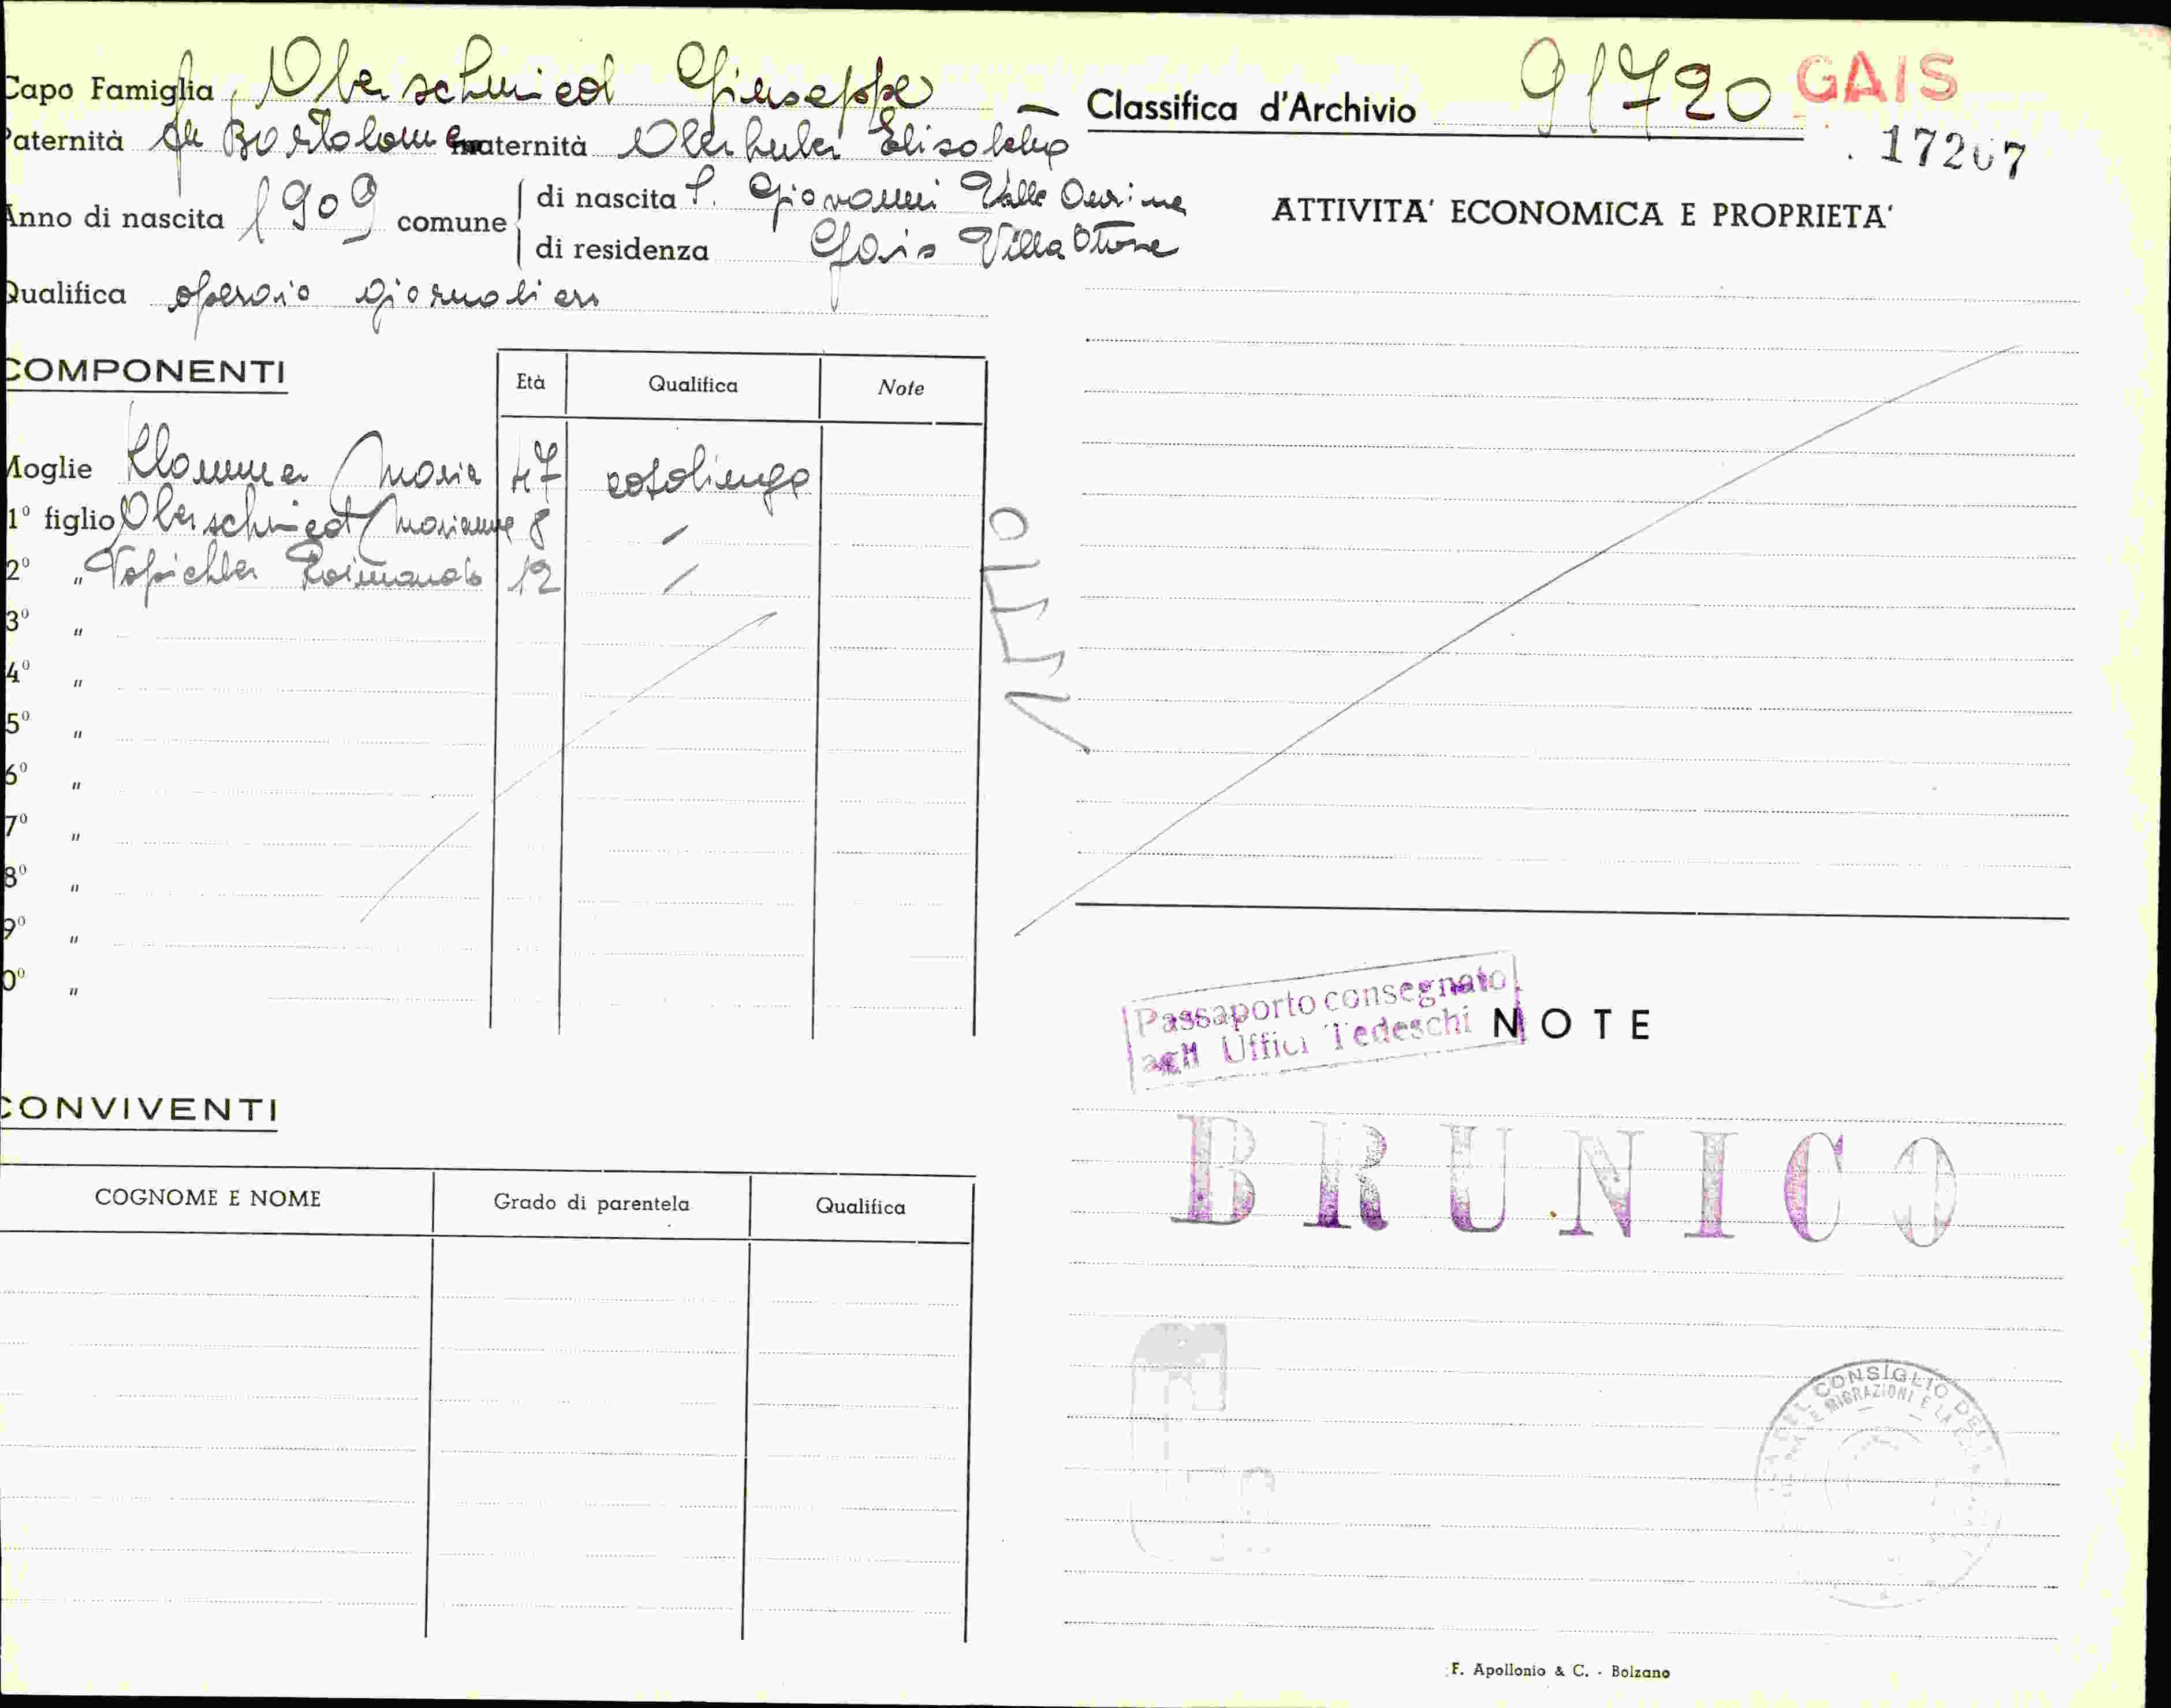 Capo Famiglia Oberschmied Giuseppe
Classifica d'Archivio 91720 GAIS
17267
Paternità fu Bortolomeo maternità Oberhuber Elisabetta
Anno di nascita 1909 comune
di nascita S. Giovanni Valle Aurina
di residenza Gais Villa Ottone
Qualifica operaio giornaliero
COMPONENTI
Età Qualifica Note
Moglie Klammer Maria 47 casalinga
1° figlio Oberschmied Marianna 8
2° „ Raimondo 12
3° „
4° „
5° „
6° „
7° „
8° „
9° „
0° „
CONVIVENTI
COGNOME E NOME Grado di parentela Qualifica
ATTIVITA' ECONOMICA E PROPRIETA'
Passaporto consegnato
agli Uffici Tedeschi
NOTE
BRUNICO
CONSIGLIO
MIGRAZIONI E LA
F. Apollonio & C. - Bolzano